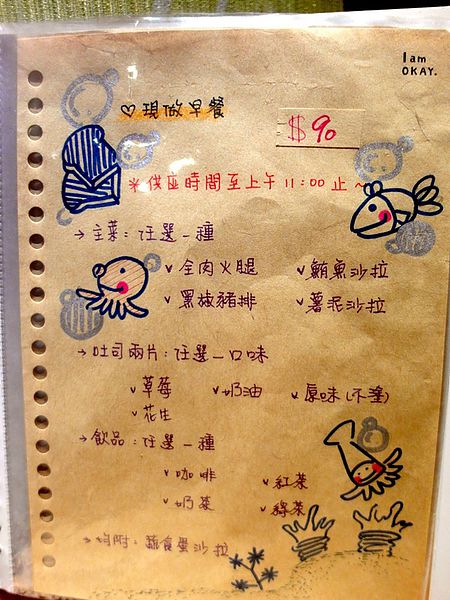 I am
OKAY.
♡現做早餐
$90
※伐座時間至上午11:00止~
→主菜:任選一種
v全肉火腿 v鮪魚沙拉
v黑胡豬排 v薯泥沙拉
→吐司兩片:任選一口味
v草莓 v奶油 v原味(不塗)
v花生
→飲品:任選一種
v咖啡 v紅茶
v奶茶 v綠茶
→均附:蔬食蛋沙拉